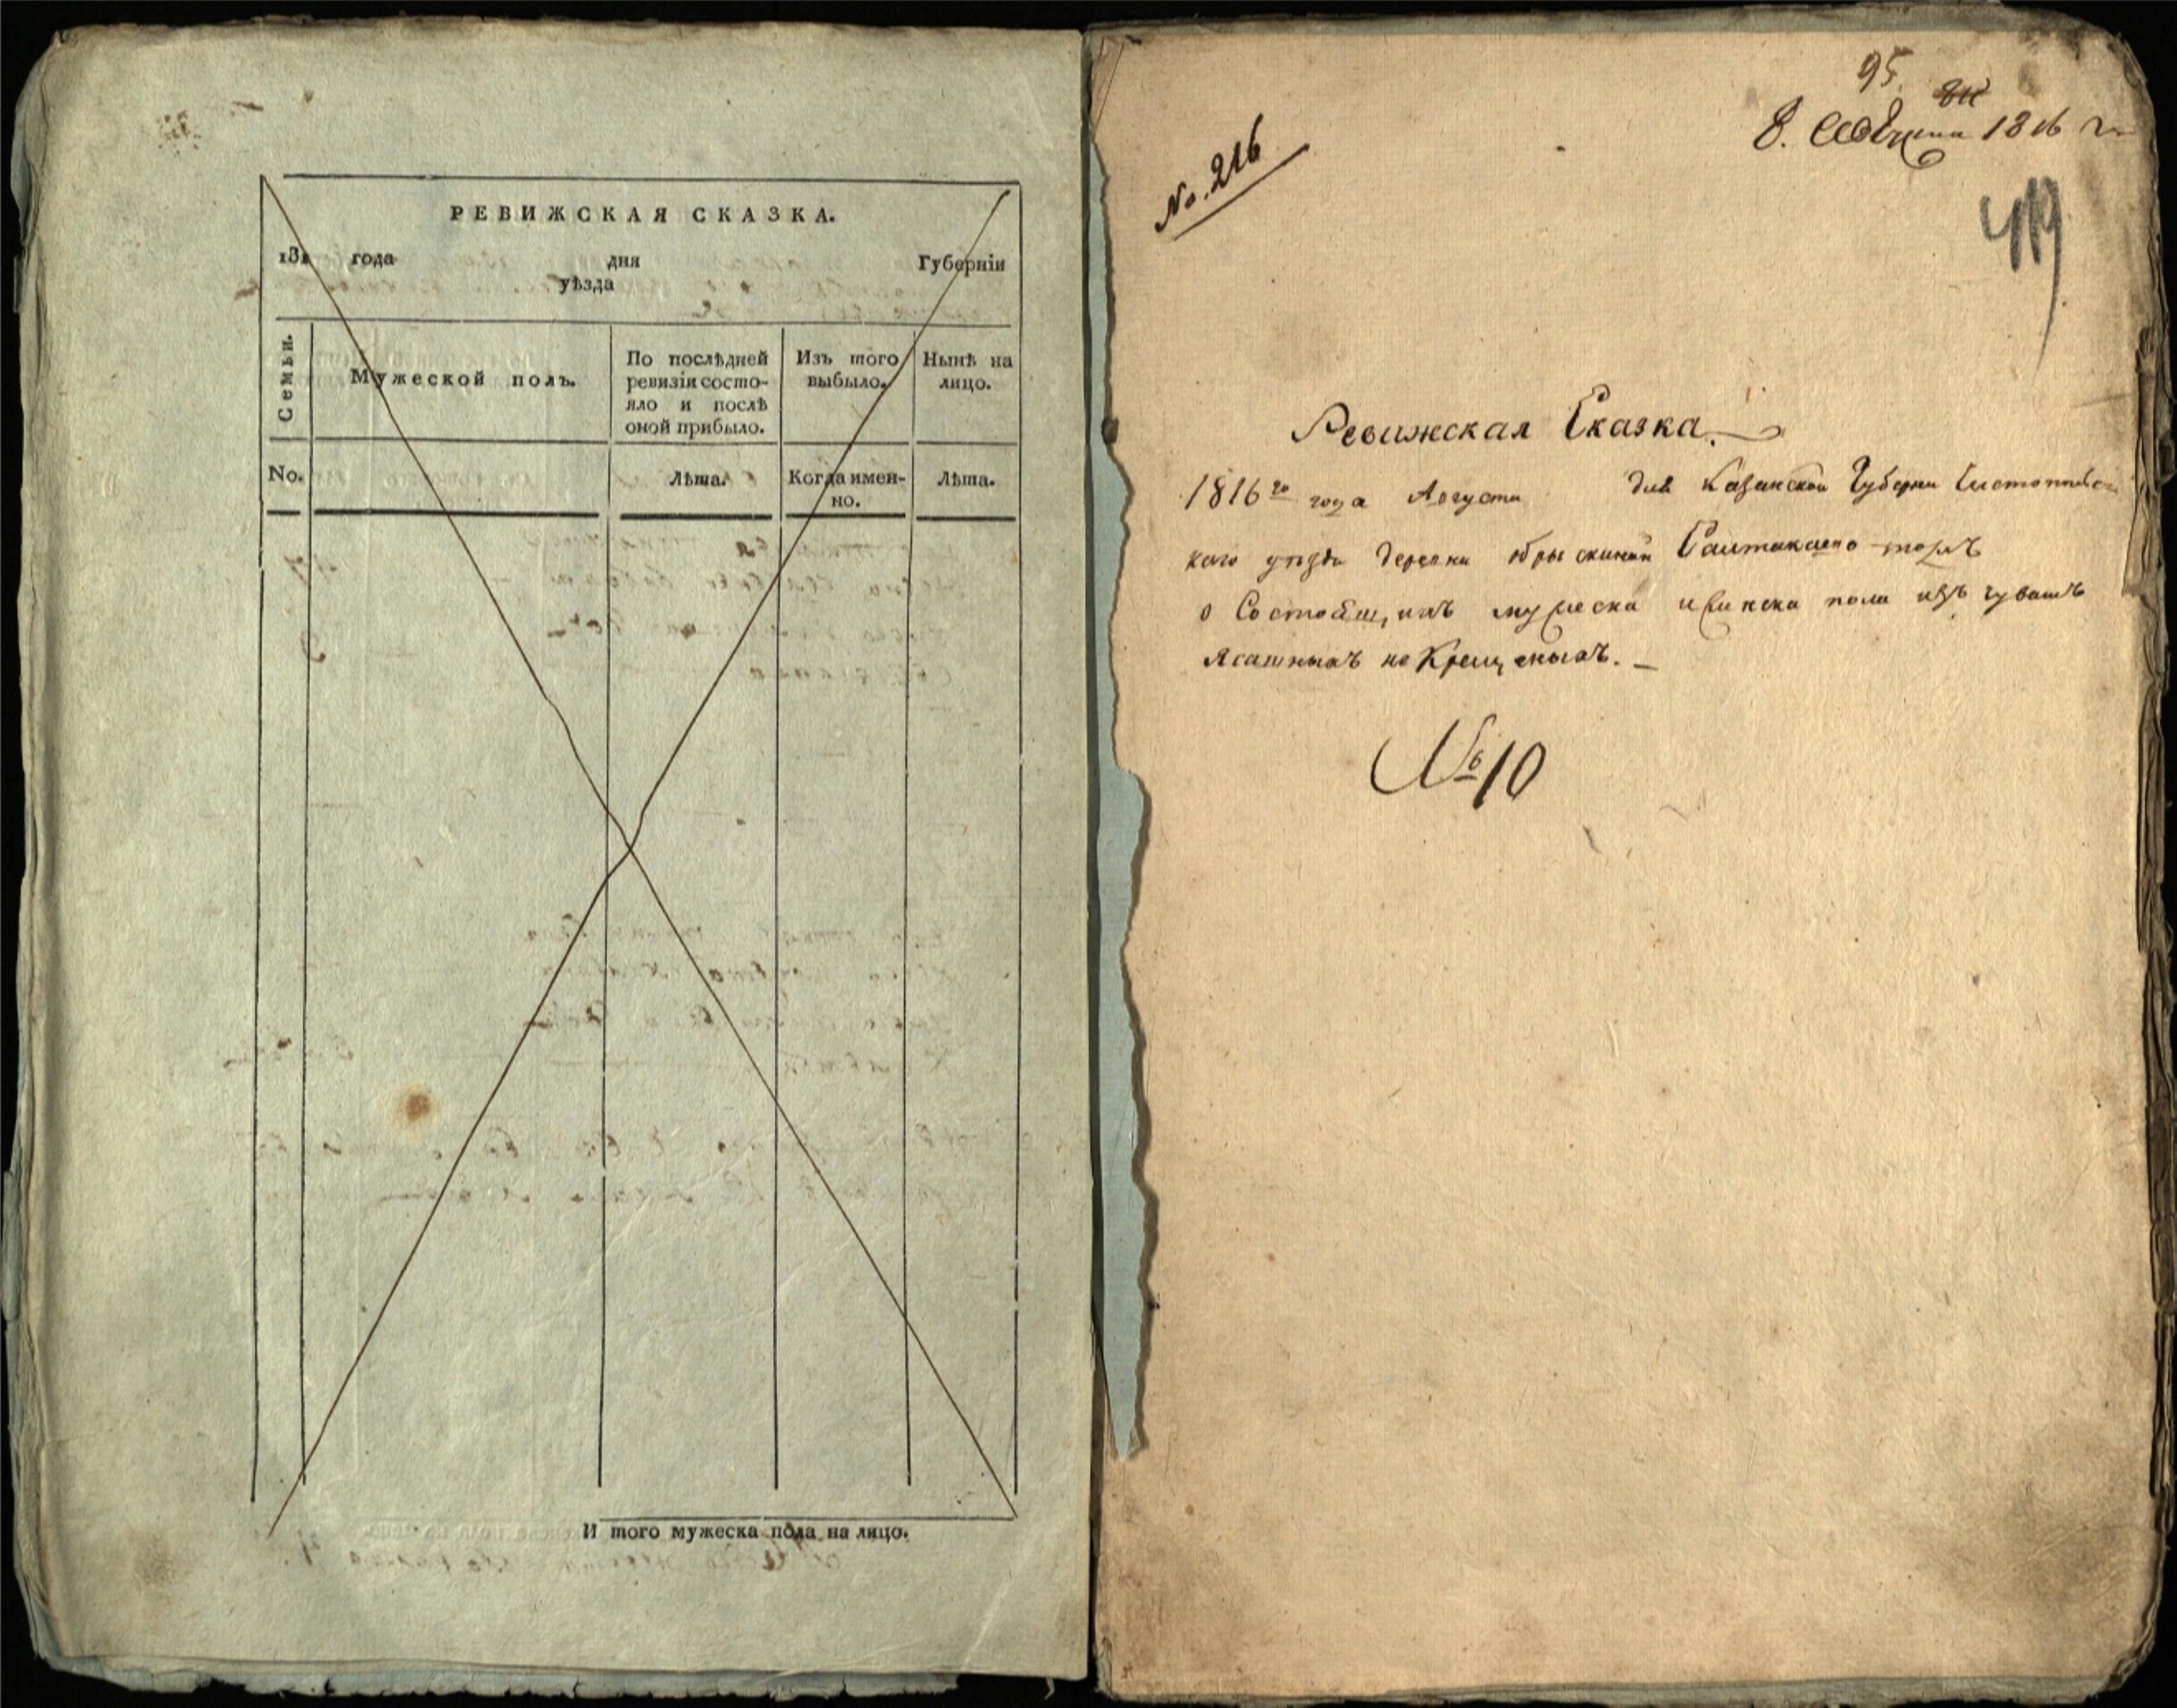 РЕВИЖСКАЯ СКАЗКА.
181 года дня Губерніи
уѣзда
Семьи.
Мужеской полъ.
По послѣдней
ревизіи состо-
яло и послѣ
оной прибыло.
Изъ того
выбыло.
Нынѣ на
лицо.
No.
Лѣта.
Когда имен-
но.
Лѣта.
И того мужеска пола на лицо.
95
8. 1816
No. 216
419
Ревижская Сказка.
1816го года Августа дня Казанской Губерни Чистопольс
каго уѣзда деревни
о Состоящихъ мужеска и женска пола изъ чувашъ
Ясашныхъ не Крещеныхъ.
№ 10